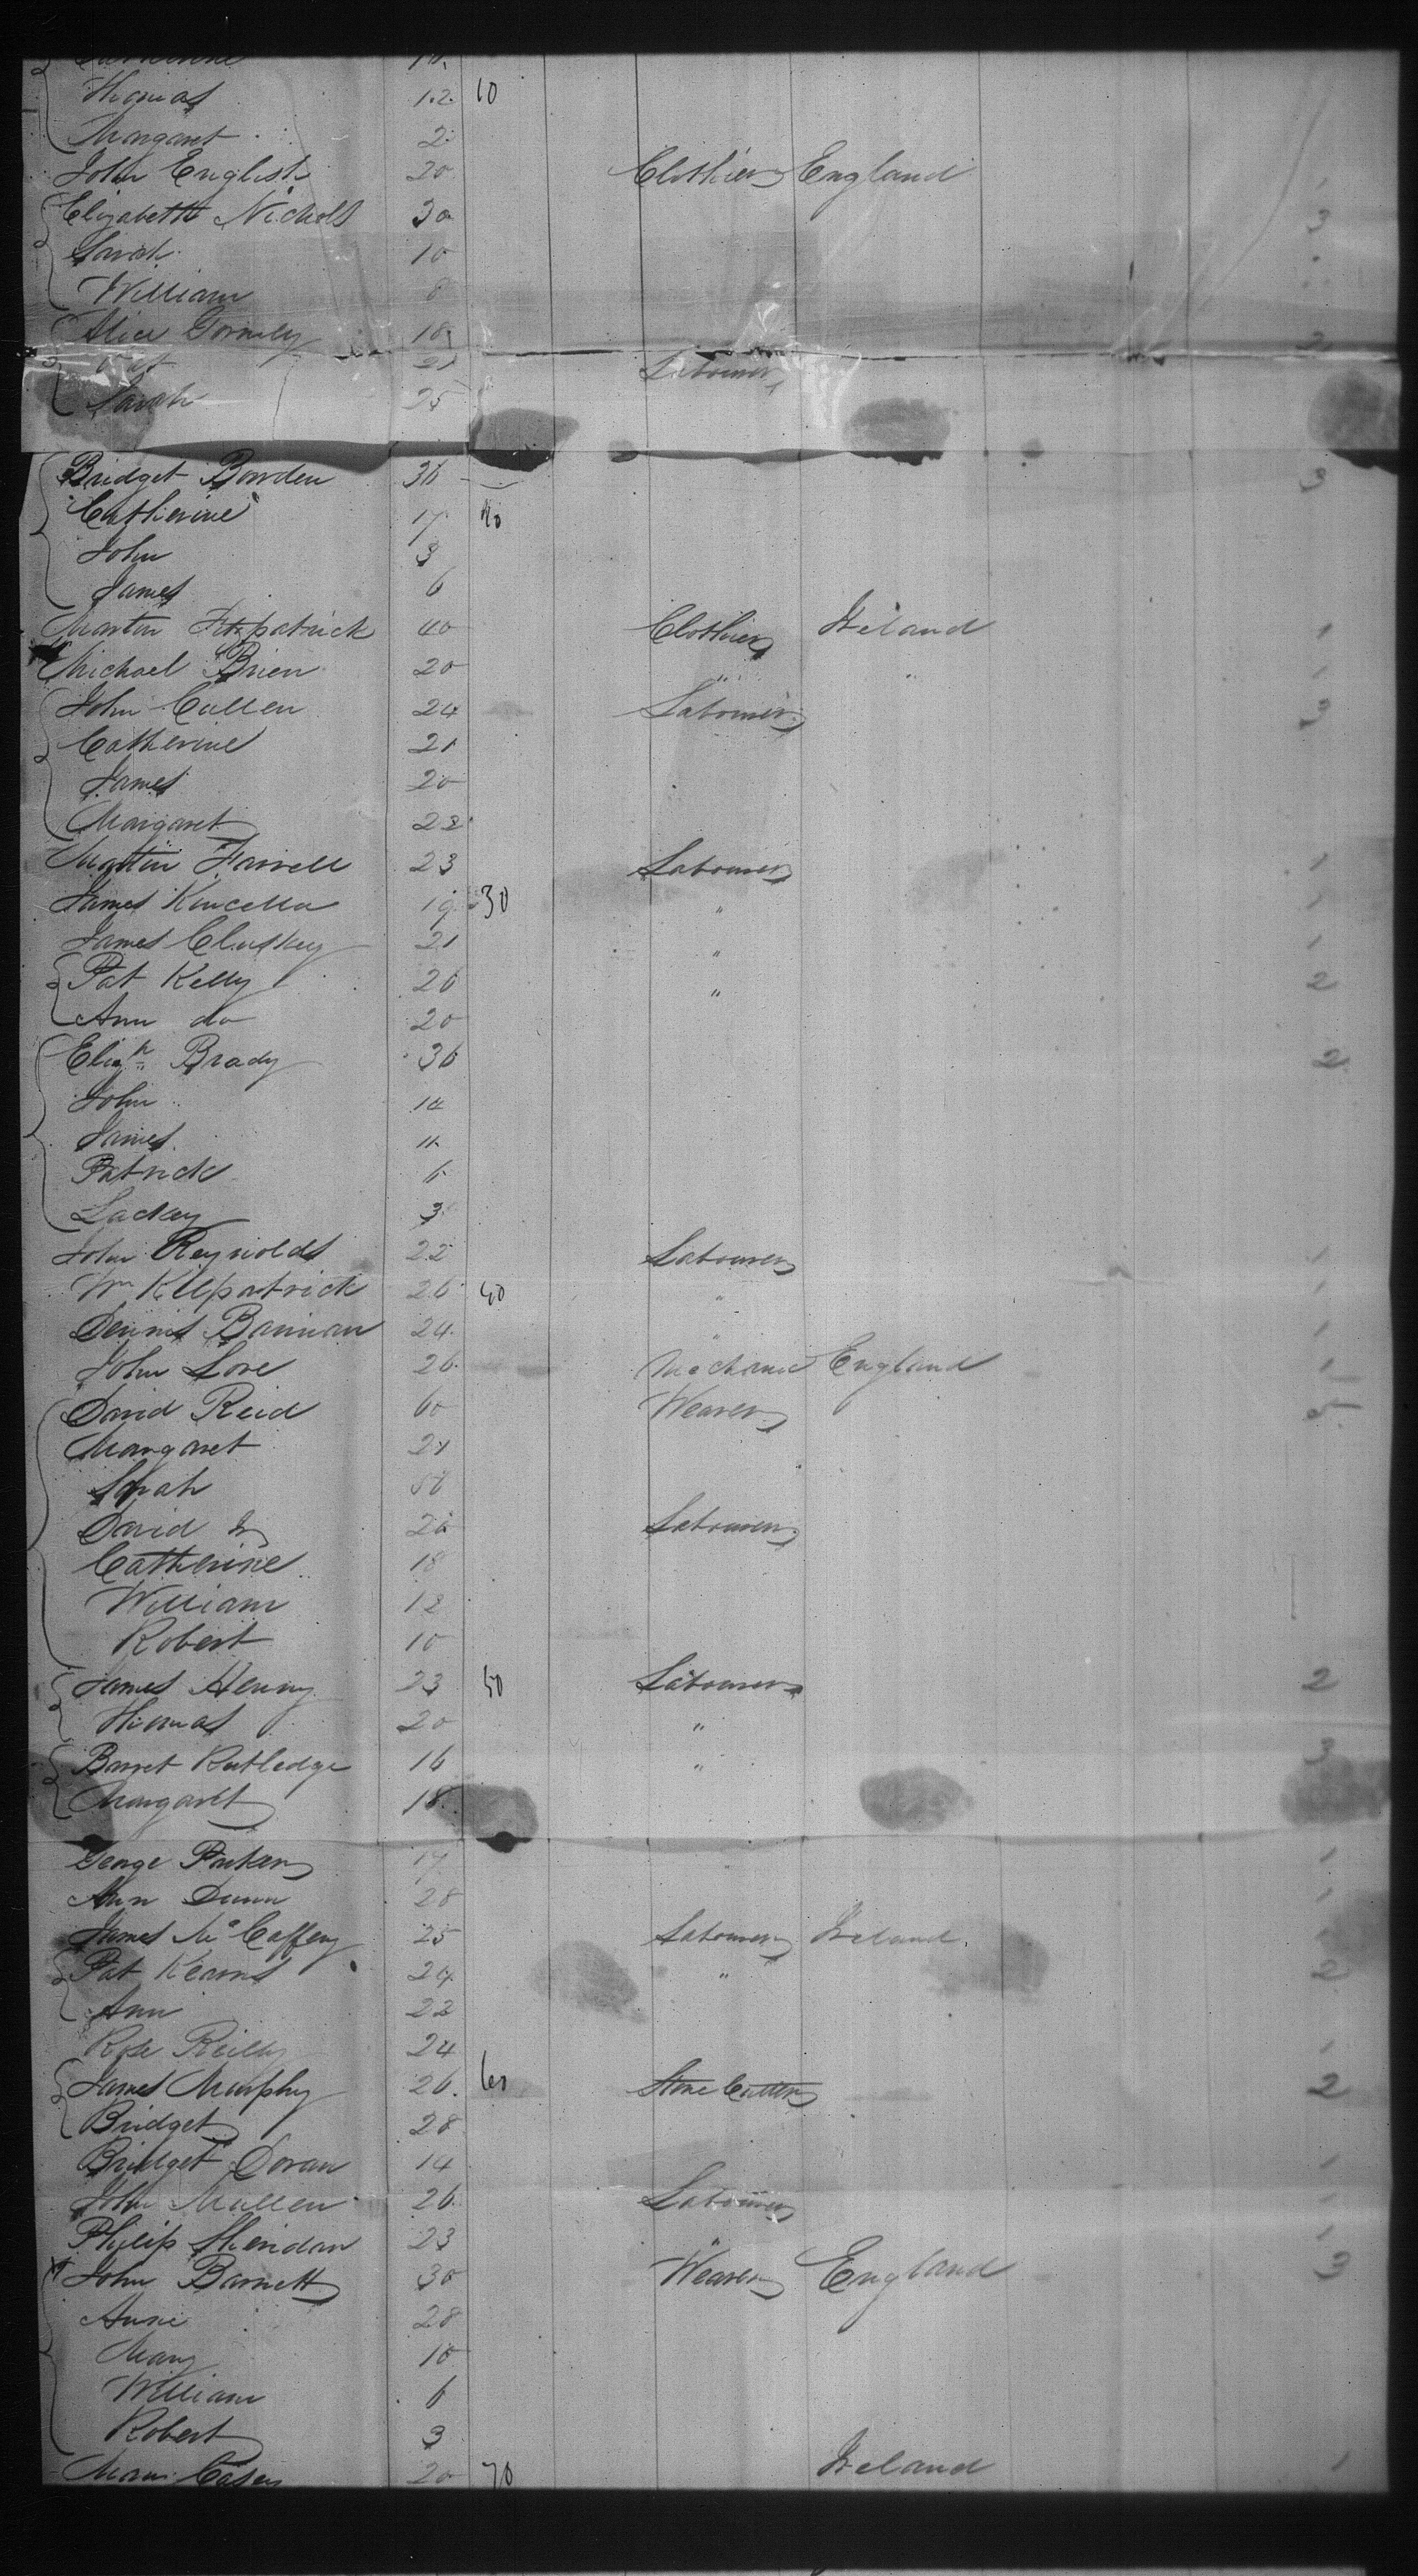 Thomas 12 10
Margaret 2
John English 20 Clothier England 1
Elizabeth Nichols 30 3
Sarah 10
William 8
Alice Gormly 18 2
Pat 21 Labourer
Sarah 25
Bridget Bowden 36 3
Catherine 17 20
John 8
James 6
Martin Fitzpatrick 40 Clothier Ireland 1
Michael Brien 20 " " 1
John Cullen 24 Labourer 3
Catherine 21
James 20
Margaret 22
Martin Farrell 23 Labourer 1
James Kincella 19 30 " 1
James Cluskey 21 " 1
Pat Kelly 26 " 2
Ann do 20
Elizh Brady 36 2
John 14
James 11
Patrick 6
Lackey 3
John Reynolds 22 Labourer 1
Wm Kilpatrick 26 40 " 1
Dennis Bannan 24 " 1
John Love 26 Mechanic England 1
David Reid 60 Weaver 5
Margaret 21
Sarah 58
David Jr 20 Labourer
Catherine 18
William 12
Robert 10
James Henry 23 50 Labourer 2
Thomas 20 "
Barret Rutledge 16 " 3
Margaret 18
George Parker 17 " 1
Ann Dunn 28 1
James McCaffery 25 Labourer Ireland 1
Pat Kearns 24 " 2
Ann 22
Rose Reilly 24 1
James Murphy 26 60 Stone Cutter 2
Bridget 28
Bridget Doran 14 1
John Mullen 26 Labourer 1
Philip Sheridan 23 " 1
John Barnett 30 Weaver England 3
Anne 28
Mary 10
William 6
Robert 3
Mary Casey 20 70 Ireland 1